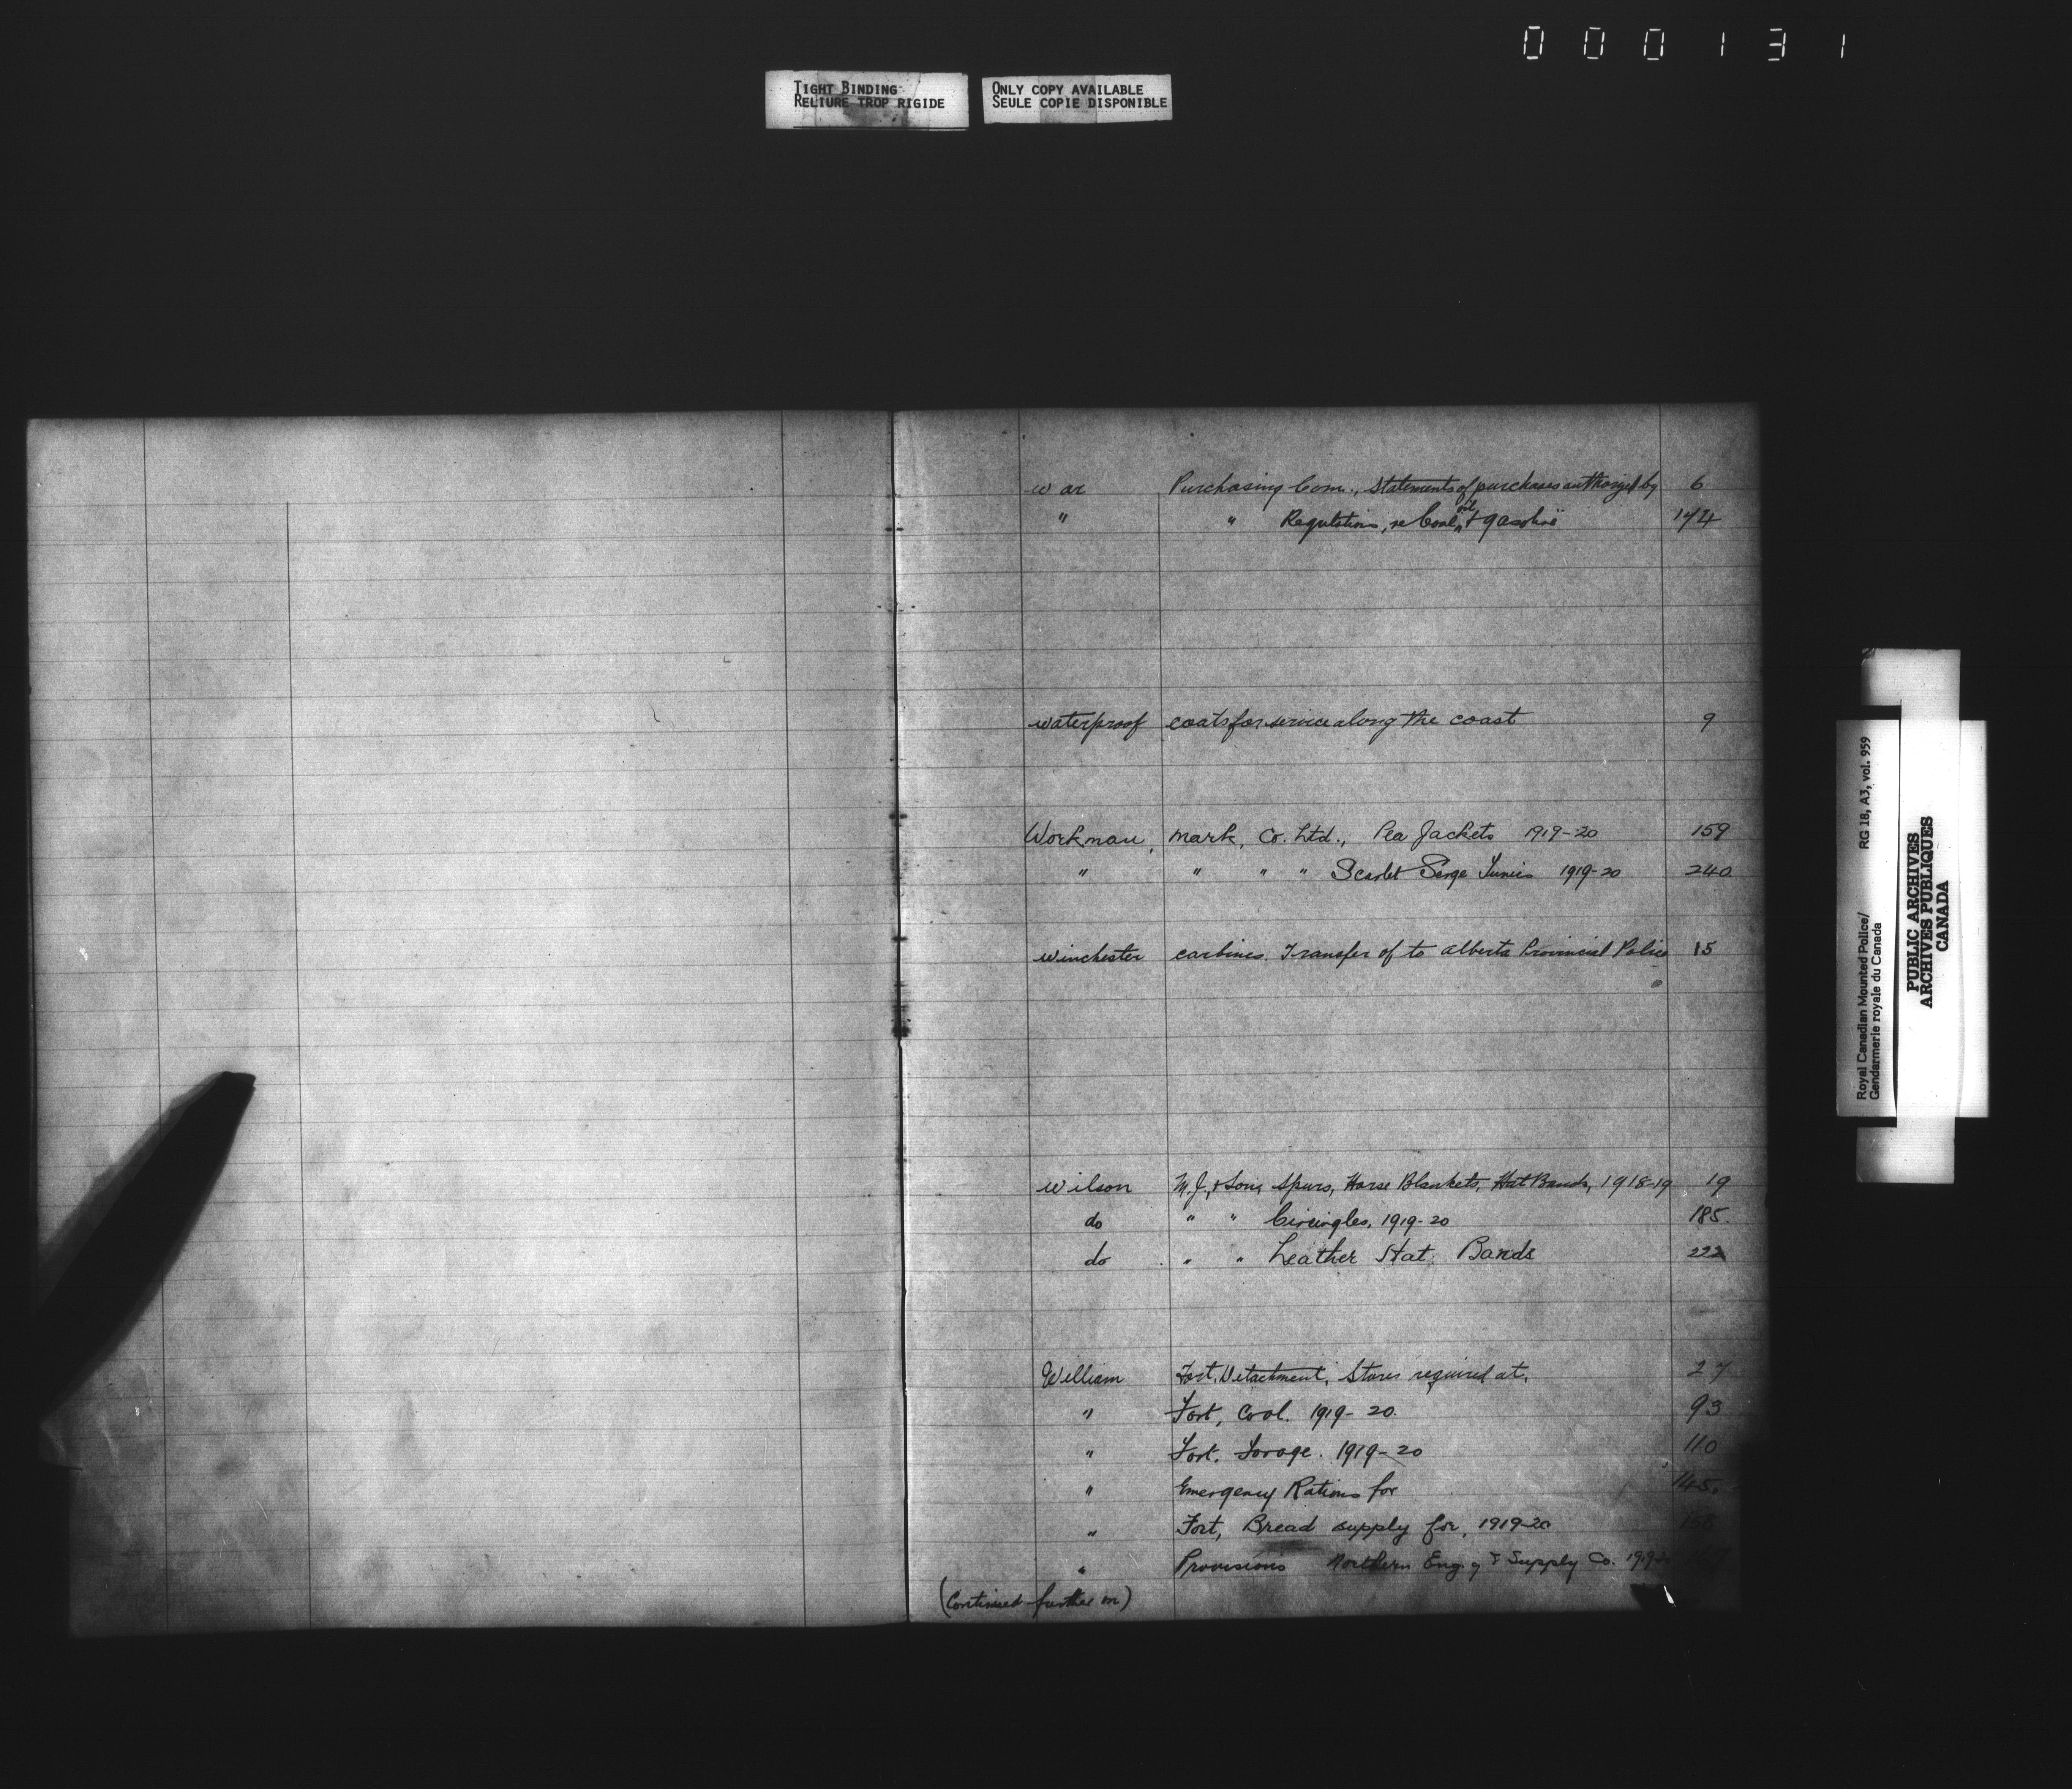 000131
TIGHT BINDING
RELIURE TROP RIGIDE
ONLY COPY AVAILABLE
SEULE COPIE DISPONIBLE
War Purchasing Com., Statements of purchases authorized by 6
" " Regulations, re Coal, oil, & gasoline 174
waterproof coats for service along the coast 9
Workman, Mark, Co. Ltd., Pea Jackets 1919-20 159
" " " " Scarlet Serge Tunics 1919-20 240
Winchester carbines. Transfer of to Alberta Provincial Police 15
Wilson M.J., & Sons, Spurs, Horse Blankets, Hat Bands, 1918-19 19
do " " Circingles, 1919-20 185.
do " " Leather Hat Bands 222
William Fort, Detachment, Stores required at, 27
" Fort, Coal. 1919-20. 93
" Fort, Forage. 1919-20 110
" Emergency Rations for 145.
" Fort, Bread supply for, 1919-20
" Provisions Northern Eng. & Supply Co.
(Continued further on)
Royal Canadian Mounted Police/
Gendarmerie royale du Canada
RG 18, A3, vol. 959
PUBLIC ARCHIVES
ARCHIVES PUBLIQUES
CANADA